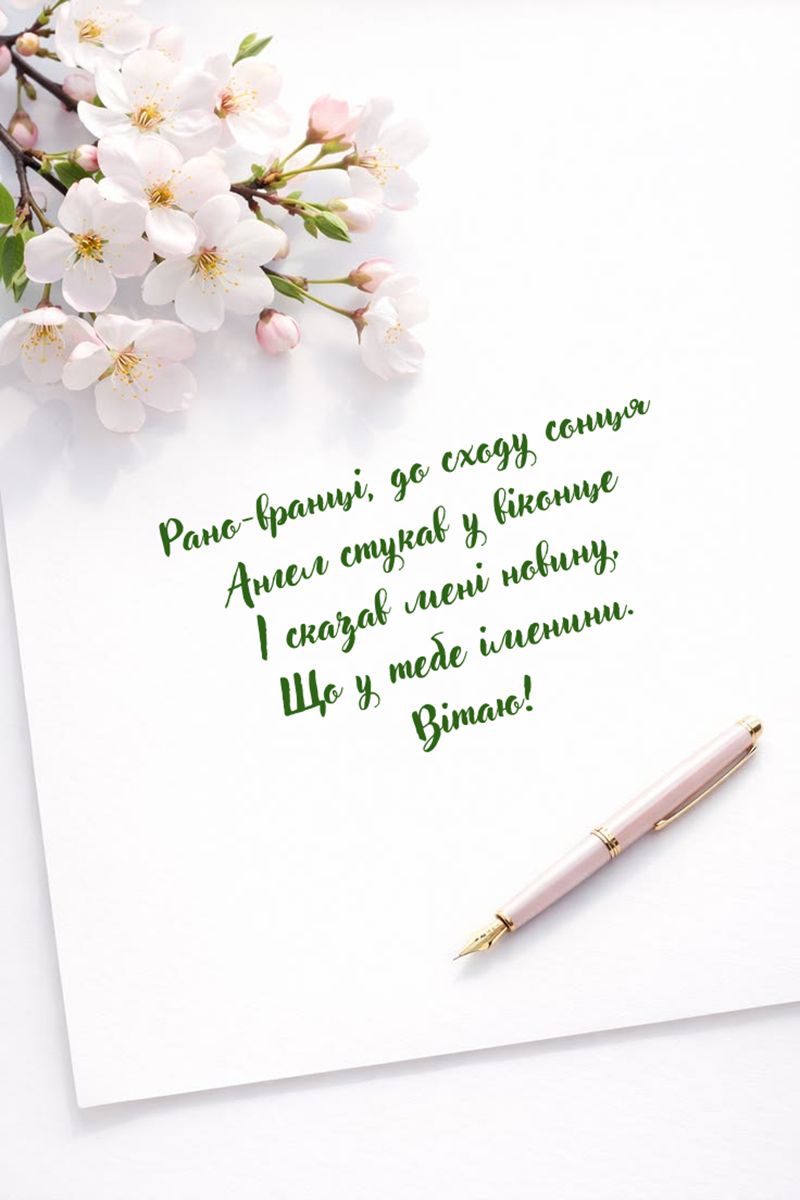 Рано-вранці, до сходу сонця
Ангел стукав у віконце
І сказав мені новину,
Що у тебе іменини.
Вітаю!